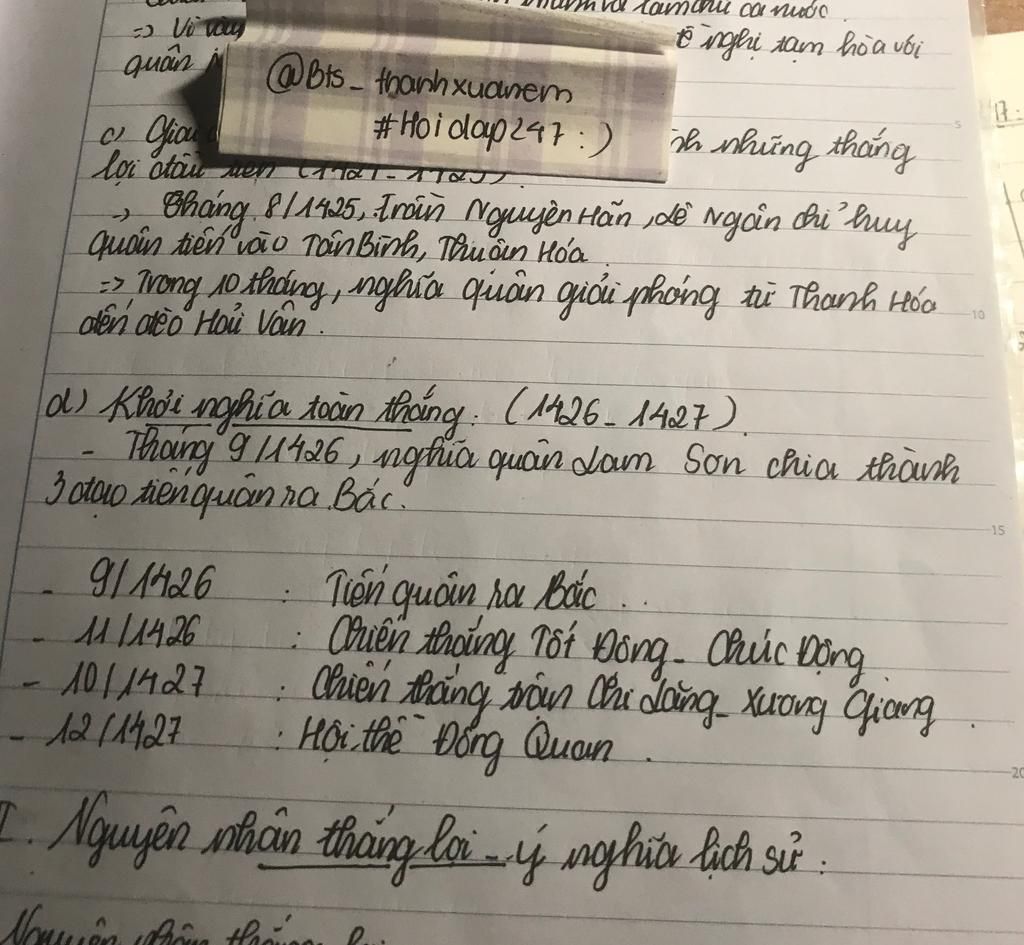 cả nước.
=> Vì vậy
đề nghị tạm hòa với
quân
@Bts_thanhxuanem
#Hoidap247 :)
c) Giai
những thắng
lợi đầu tiên
-> Tháng 8/1425, Trần Nguyên Hãn, Lê Ngân chỉ huy
quân tiến vào Tân Bình, Thuận Hóa.
=> Trong 10 tháng, nghĩa quân giải phóng từ Thanh Hóa
đến đèo Hải Vân.
d) Khởi nghĩa toàn thắng. (1426-1427).
- Tháng 9/1426, nghĩa quân Lam Sơn chia thành
3 đạo tiến quân ra Bắc.
- 9/1426 : Tiến quân ra Bắc.
- 11/1426 : Chiến thắng Tốt Động - Chúc Động
- 10/1427 : Chiến thắng trận Chi Lăng - Xương Giang.
- 12/1427 : Hội thề Đông Quan.
I. Nguyên nhân thắng lợi - ý nghĩa lịch sử:
Nguyên nhân thắng lợi